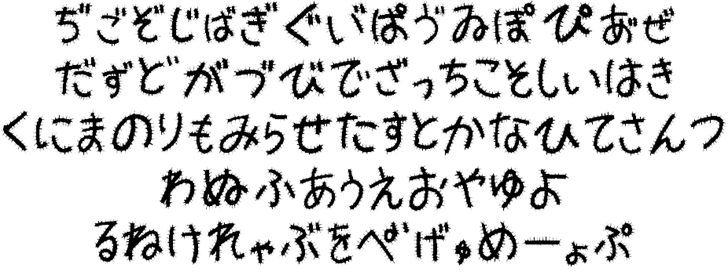 ぢごぞじばぎぐいぱゔゐぽぴおぜ
だずどがづびでざっちこそしいはき
くにまのりもみらせたすとかなひてさんつ
わぬふあうえおやゆよ
るねけれゃぶをぺげゅめーょぷ